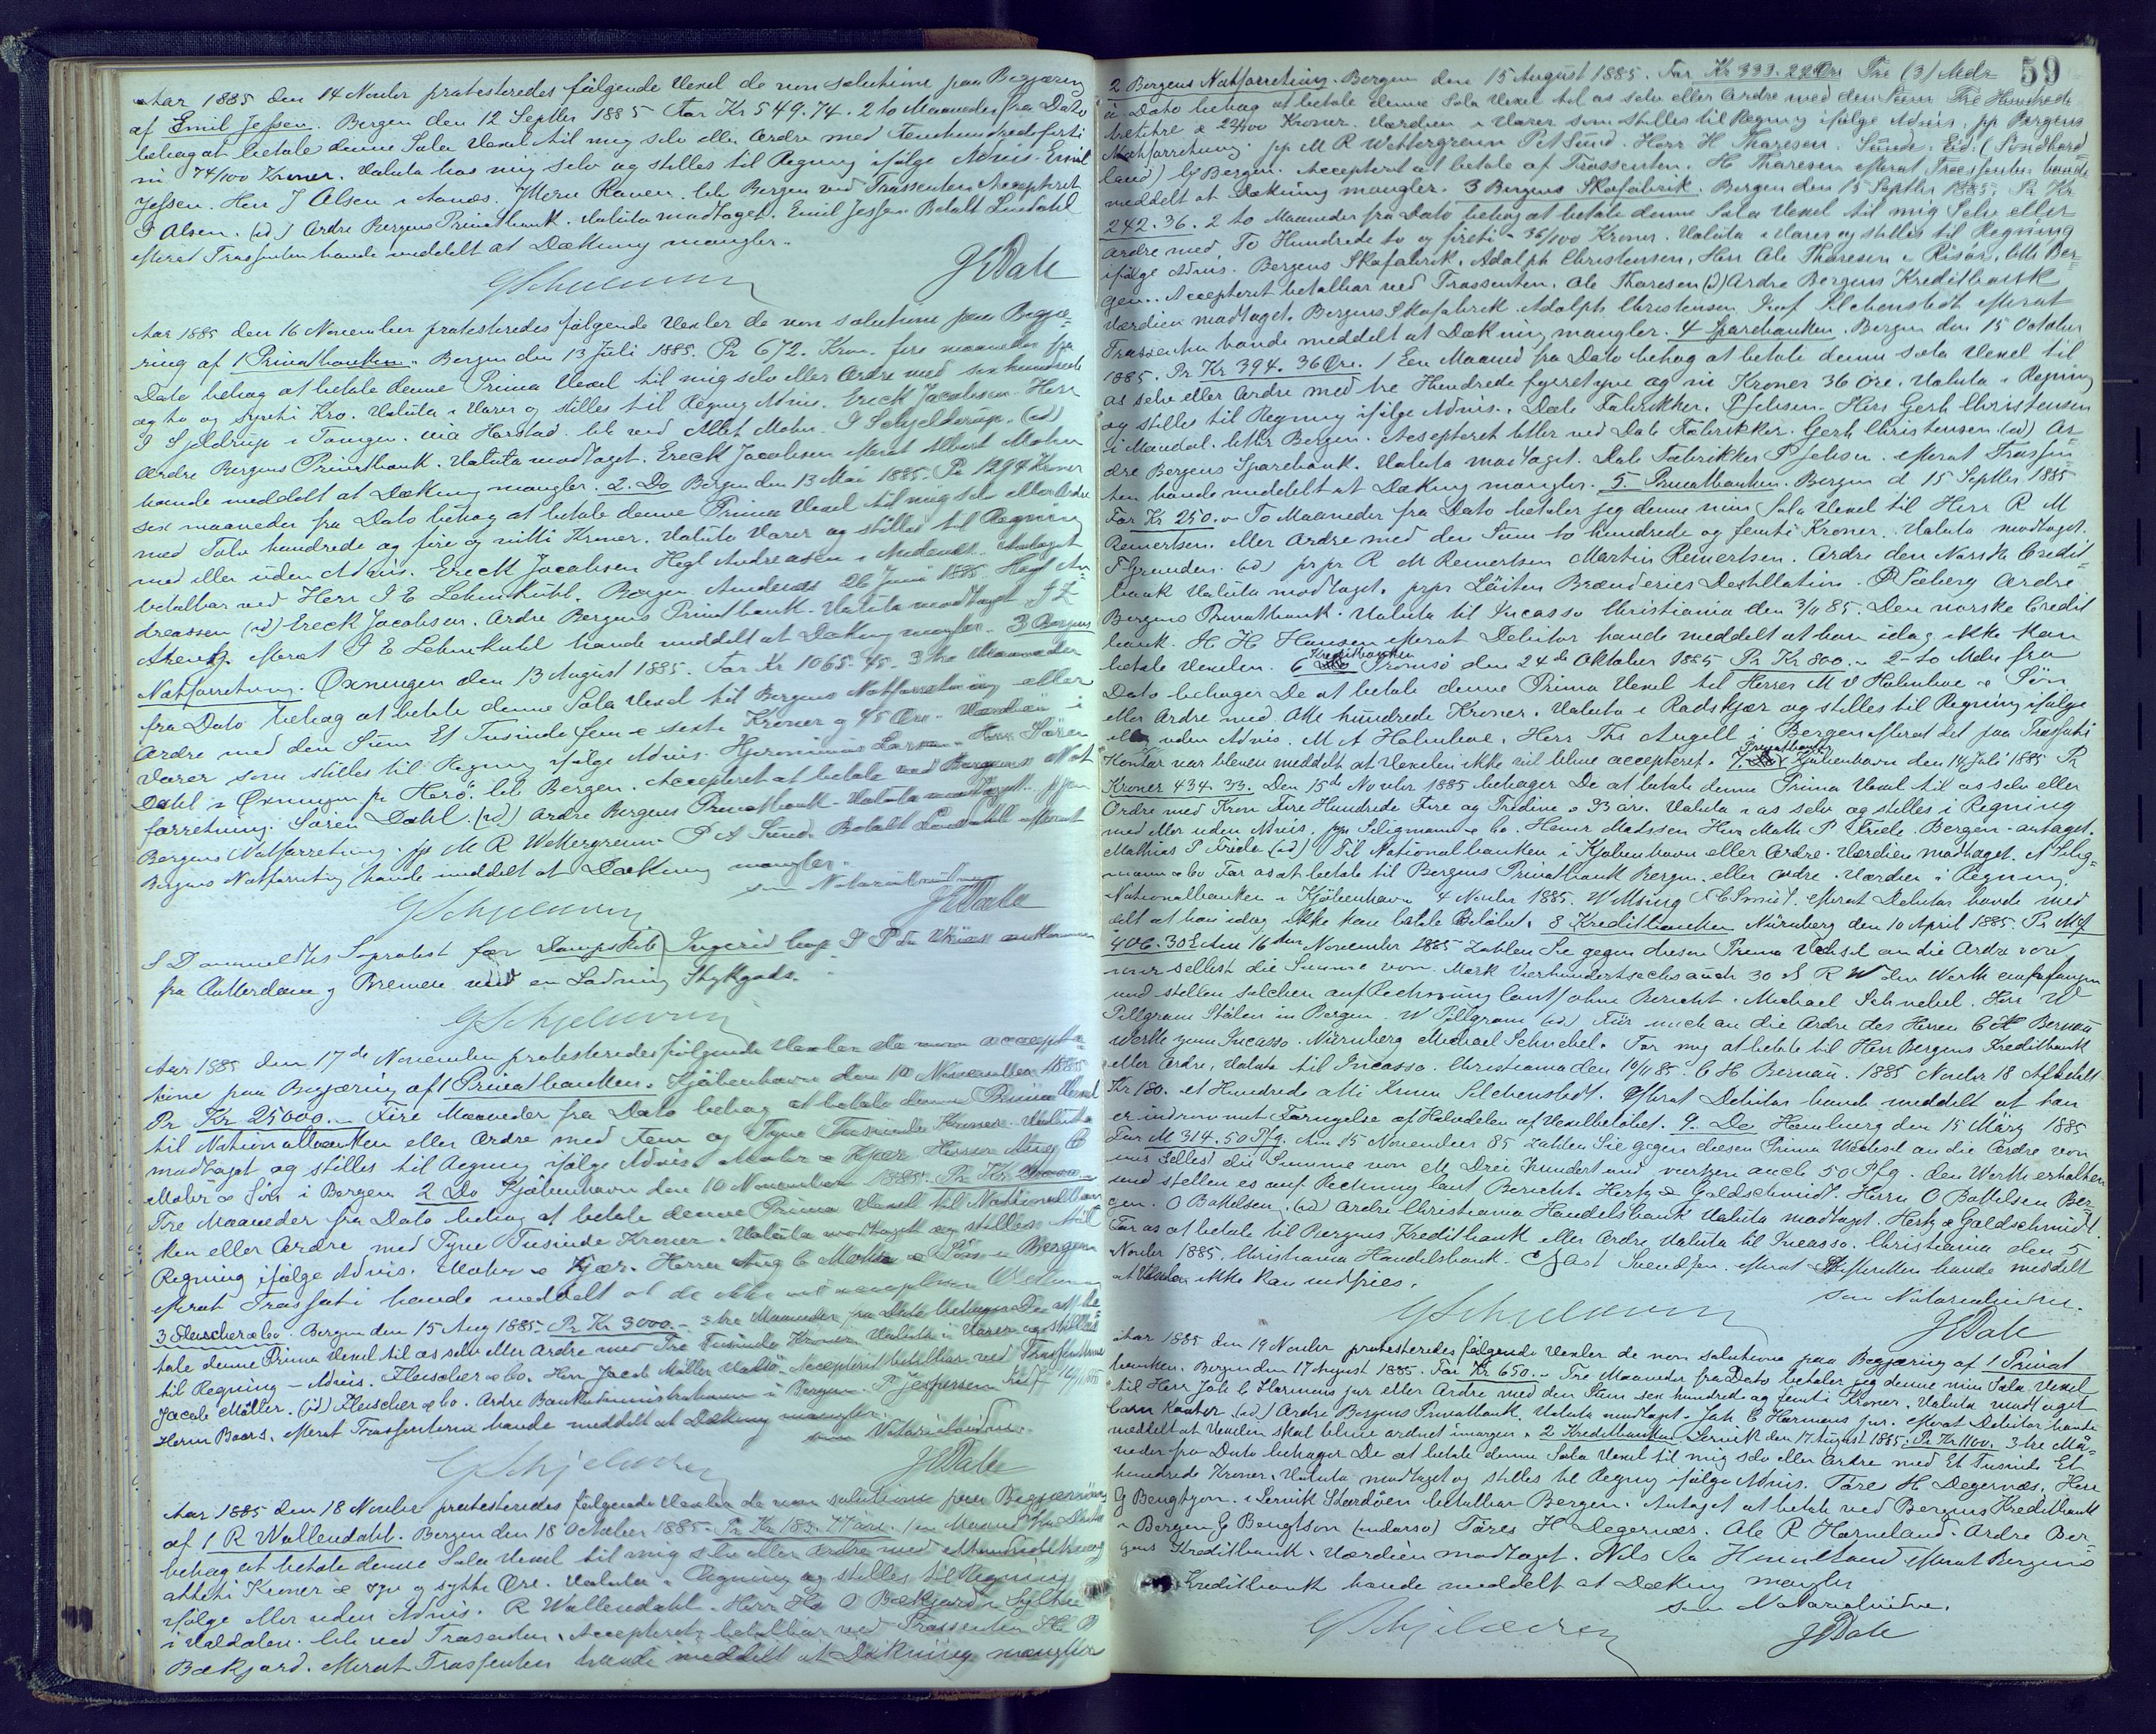 Aar 1885 den 14 Novbr protesteredes følgende Vexel de non solutione paa Begjæring
af Emil Jessen. Bergen den 12 Septbr 1885 For Kr 549.74. 2 to Maaneder fra Dato
behag at betale denne Sola Vexel til mig selv eller Ordre med Femhundrede firti
ni 74/100 Kroner. Valuta hos mig selv og stilles til Regning ifølge Advis. Emil
Jessen. Herr J Olsen i Aanæs. Ytteru Raven. bet. Bergen ved Trassenten Accepteret
J Olsen. (id) Ordre Bergens Privatbank. Valuta modtaget. Emil Jessen Betalt Lindahl
efterat Trassenten havde meddelt at Dækning mangler.
GSchjelderup JEDale
Aar 1885 den 16 November protesteredes følgende Vexler de non solutione paa Begjæ-
ring af 1 Privatbanken. Bergen den 13 Juli 1885. Pr 672. Kron. fire maaneder fra
Dato behag at betale denne Prima Vexel til mig selv eller Ordre med sexhundrede
og to og sytti Kro. Valuta i Varer og stilles til Regning Advis. Erick Jacobsen. Herr
J Sjeldrup i Tangen. via Harstad. bet. ved Albt Mohn. J Schjelderup. (id)
Ordre Bergens Privatbank. Valuta modtaget. Erick Jacobsen efterat Albert Mohn
havde meddelt at Dækning mangler. 2. Do Bergen den 13 Mai 1885. Pr 1294 Kroner
sex maaneder fra Dato behag at betale denne Prima Vexel til mig selv eller Ordre
med Tolv hundrede og fire og nitti Kroner. Valuta Varer og stilles til Regning
med eller uden Advis. Erick Jacobsen Hegl Andreasen i Andenæs. Antaget
betalbar ved Herr J E Lehmkuhl. Bergen Andenæs 26 Juni 1885. Hegl An-
dreassen (id) Erick Jacobsen. Ordre Bergens Privatbank. Valuta modtaget. J E
efterat J E Lehmkuhl havde meddelt at Dækning mangler. 3 Bergens
Notforretning. Oxningen den 13 August 1885. For Kr 1065.45. 3 tre Maaneder
fra Dato behag at betale denne Sola Vexel til Bergens Notforretning eller
Ordre med den Sum Et Tusinde fem & sexti Kroner og 45 Øre. Værdien i
Varer som stilles til Regning ifølge Advis. Hjeronimus Larsen. Herr Søren
Dahl i Oxningen pr Herø. bet. Bergen. Accepteret at betale ved Bergens Not
forretning. Søren Dahl. (id) Ordre Bergens Privatbank. Valuta modtaget. pp
Bergens Notforretning. pp M R Wettergreen. P A Sund. Betalt Lindahl efterat
Bergens Notforretning havde meddelt at Dækning mangler.
som Notarialvidne
GSchjelderup JEDale
S D anmeldtes Søprotest for Dampskib Ingerid Capt J P ankommen
fra Antterdam og Bremen med en Ladning Stykgods.
GSchjelderup
Aar 1885 den 17de November protesteredes følgende Vexler de non accepta-
tione paa Begjæring af 1 Privatbanken. Kjøbenhavn den 10 November 1885
Pr Kr 25000.- Fire Maaneder fra Dato behag at betale denne Prima Vexel
til Nationalbanken eller Ordre med Fem og Tyve Tusinde Kroner. Valuta
modtaget og stilles til Regning ifølge Advis. Mohr & Kjær. Herrer Aug C
Mohr & Søn i Bergen 2 Do Kjøbenhavn den 10 November 1885. Pr Kr 20000.-
Tre Maaneder fra Dato behag at betale denne Prima Vexel til Nationalban
ken eller Ordre med Tyve Tusinde Kroner. Valuta modtaget og stilles til
Regning ifølge Advis. Mohr & Kjær. Herrer Aug C Mohr & Søn i Bergen
efterat Trassati havde meddelt at de ikke vil acceptere Vexlerne
3 Fleischer & Co. Bergen den 15 Aug 1885. Pr Kr 3000.- 3 tre Maaneder fra Dato behager De at be-
tale denne Prima Vexel til os selv eller Ordre med Tre Tusinde Kroner. Valuta i Varer og stilles
til Regning - Advis. Fleischer & Co. Herr Jacob Møller Vadsø. Accepteret betalbar ved Trassenterne
Jacob Møller. (id) Fleischer & Co. Ordre Bankadministrationen i Bergen. P Jespersen
Herm Boars. efterat Trassenterne havde meddelt at Dækning mangler.
som Notarialvidne.
GSchjelderup JEDale
Aar 1885 den 18 Novbr protesteredes følgende Vexler de non solutione paa Begjæring
af 1 R Wallendahl. Bergen den 18 October 1885. Pr Kr 183.77 øre. 1 en Maaned fra Dato
behag at betale denne Sola Vexel til mig selv eller Ordre med ethundrede tre og
otteti Kroner & syv og sytti Øre. Valuta i Regning og stilles til Regning
ifølge eller uden Advis. R Wallendahl. Herr Ha O Bækjord i Sylte
i Valdalen. bet. ved Trassenten. Accepteret betalbar ved Trassenten Ha O
Bækjord. efterat Trassenten havde meddelt at Dækning mangler
59
2 Bergens Notforretning. Bergen den 15 August 1885. For Kr 333.22 Øre Tre (3) Mdr
a Dato behag at betale denne Sola Vexel til os selv eller Ordre med den Sum Tre Hundrede
tretitre & 22/100 Kroner. Værdien i Varer som stilles til Regning ifølge Advis. pp Bergens
Notforretning. pp M R Wettergreen P A Sund. Herr H Thoresen. Sunde. Eid. (Søndhord
land) bet Bergen. Accepteret at betale af Trassenten. H Thoresen efterat Trassenten havde
meddelt at Dækning mangler. 3 Bergens Skofabrik. Bergen den 15 Septbr 1885. Pr Kr
242.36. 2 to Maaneder fra Dato behag at betale denne Sola Vexel til mig Selv eller
Ordre med To Hundrede to og firti - 36/100 Kroner. Valuta i Varer og stilles til Regning
ifølge Advis. Bergens Skofabrik. Adolph Christensen. Herr Ole Thoresen i Risør. bett Ber-
gen. Accepteret betalbar ved Trassenten. Ole Thoresen (id) Ordre Bergens Kreditbank
Værdien modtaget. Bergens Skofabrik Adolph Christensen. Knof Silchenstedt efterat
Trassenten havde meddelt at Dækning mangler. 4 Sparebanken. Bergen den 15 October
1885. Pr Kr 394.36 Øre. 1 Een Maaned fra Dato behag at betale denne sola Vexel til
os selv eller Ordre med tre Hundrede fireretyve og ni Kroner 36 Øre. Valuta i Regning
og stilles til Regning ifølge Advis. Dale Fabrikker. P Jebsen. Herr Gerh Christensen
i Mandal. better Bergen. Accepteret better ved Dale Fabrikker. Gerh Christensen (id) Or-
dre Bergens Sparebank. Valuta modtaget. Dale Fabrikker P Jebsen. efterat Trassen
ten havde meddelt at Dækning mangler. 5. Privatbanken. Bergen d 15 Septbr 1885
For Kr 250.- To Maaneder fra Dato betaler jeg denne min Sola Vexel til Herr R M
Reinertsen. eller Ordre med den Sum to hundrede og femti Kroner. Valuta modtaget.
F Grunden. (id) pr pr R M Reinertsen Martin Reinertsen. Ordre den Norske Credit-
bank Valuta modtaget. prpr Løiten Brænderies Destillation. Sæberg Ordre
Bergens Privatbank. Valuta til Incasso Christiania den 3/11 85. Den norske Credit
bank. H H Hansen efterat Debitor havde meddelt at han idag ikke kan
betale Vexelen. 6 Kreditbanken Tromsø den 24de Oktober 1885 Pr Kr 800.- 2-to Mdr fra
Dato behager De at betale denne Prima Vexel til Herrer M V Holmboe & Søn
eller Ordre med Otte hundrede Kroner. Valuta i Radskjær og stilles til Regning ifølge
eller uden Advis. M A Holmboe. Herr Ths Angell i Bergen efterat det paa Trassati
Kontor var bleven meddelt at Vexelen ikke vil blive accepteret. 7. Privatbanken Kjøbenhavn den 14 Juli 1885 Pr
Kroner 434.33. Den 15de Novbr 1885 behager De at betale denne Prima Vexel til os selv eller
Ordre med Kron Fire Hundrede Fire og Tredive & 33 øre. Valuta i os selv og stilles i Regning
med eller uden Advis. pp Seligmann & Co. Heinr Madssen Herr Math P Friele. Bergen - antaget.
Mathias P Friele (id) Til Nationalbanken i Kjøbenhavn eller Ordre. Værdien modtaget. A Selig-
mann & Co For os at betale til Bergens Privatbank Bergen. eller Ordre. Værdien i Regning.
Nationalbanken i Kjøbenhavn 4 Novbr 1885. W Msing C Smidt. efterat Debitor havde med
delt at han idag ikke kan betale Beløbet. 8 Kreditbanken Nürnberg den 10 April 1885. Pr Mk
406.30 d. Am 16ten November 1885 Zahlen Sie gegen diesen Prima Wechsel an die Ordre von
mir selbst die Summe von Mark Vierhundertsechs auch 30 d R W den Werth empfangen
und stellen solchen auf Rechnung laut/ohne Bericht. Michael Schnebel. Herr W
Pillgram Stølen in Bergen. W Pillgram (id) Für mich an die Ordre des Herren C H Bernau
Werthe zum Incasso. Nürnberg Michael Schnebel. For mig at betale til Herr Bergens Kreditbank
eller Ordre, Valuta til Incasso. Christiania den 10/11 85. C H Bernau. 1885 Novbr 18 Afbetalt
Kr 180. et Hundrede otti Kroner Silchenstedt. Efterat Debitor havde meddelt at han
er indrømmet Fornyelse af Halvdelen af Vexelbeløbet. 9. Do Hamburg den 15 März 1885
For M 314.50 Pfg. Am 15 November 85 zahlen Sie gegen diesen Prima Wechsel an die Ordre von
uns Selbst die Summe von M Drei hundert und vierzen auch 50 Pfg. den Werth erhalten
und stellen es auf Rechnung laut Bericht. Hertz & Goldschmidt. Herrn O Bottelsen Ber-
gen. O Bottelsen. (id) Ordre Christiania Handelsbank Valuta modtaget. Hertz & Goldschmidt.
For os at betale til Bergens Kreditbank eller Ordre Valuta til Incasso. Christiania den 5
Novbr 1885. Christiania Handelsbank. Svendsen. efterat havde meddelt
at Vexelen ikke kan indfries.
som Notarialvidne.
GSchjelderup JEDale
Aar 1885 den 19 Novbr protesteredes følgende Vexler de non solutione paa Begjæring af 1 Privat
banken. Bergen den 17 August 1885. For Kr 650.- Tre Maaneder fra Dato betaler jeg denne min Sola Vexel
til Herr Joh C Harmens jur eller Ordre med den Sum sex hundrede og femti Kroner. Valuta modtaget
(id) Ordre Bergens Privatbank. Valuta modtaget. Joh. C Harmens jur. efterat Debitor havde
meddelt at Vexelen skal blive ordnet imorgen. 2 Kreditbanken Lervik den 17 August 1885. Pr Kr 1100. 3 tre Må-
neder fra Dato behager De at betale denne Sola Vexel til mig selv eller Ordre med Et Tusinde Et
hundrede Kroner. Valuta modtaget og stilles til Regning ifølge Advis. Tøre H Degernæs. Herr
G Bengtzon. i Lervik Stordøen betalbar Bergen. Antaget at betale ved Bergens Kreditbank
i Bergen G Bengtson (indorso) Tøres H Degernæs. Ole R Horneland. Ordre Ber-
gens Kreditbank. Værdien modtaget. Nils Aa efterat Bergens
Kreditbank havde meddelt at Dækning mangler
som Notarialvidne.
GSchjelderup JEDale